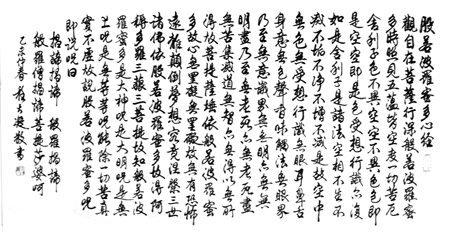 般若波羅蜜多心經
觀自在菩薩行深般若波羅蜜
多時照見五蘊皆空度一切苦厄
舍利子色不異空空不異色色即
是空空即是色受想行識亦復
如是舍利子是諸法空相不生不
滅不垢不淨不增不減是故空中
無色無受想行識無眼耳鼻舌
身意無色聲香味觸法無眼界
乃至無意識界無無明亦無無
明盡乃至無老死亦無老死盡
無苦集滅道無智亦無得以無所
得故菩提薩埵依般若波羅蜜
多故心無罣礙無罣礙故無有恐怖
遠離顛倒夢想究竟涅槃三世
諸佛依般若波羅蜜多故得阿
耨多羅三藐三菩提故知般若波
羅蜜多是大神咒是大明咒是無
上咒是無等等咒能除一切苦真
實不虛故說般若波羅蜜多咒
即說咒曰
揭諦揭諦 般羅揭諦
般羅僧揭諦菩提莎婆呵
乙未仲春 敬書